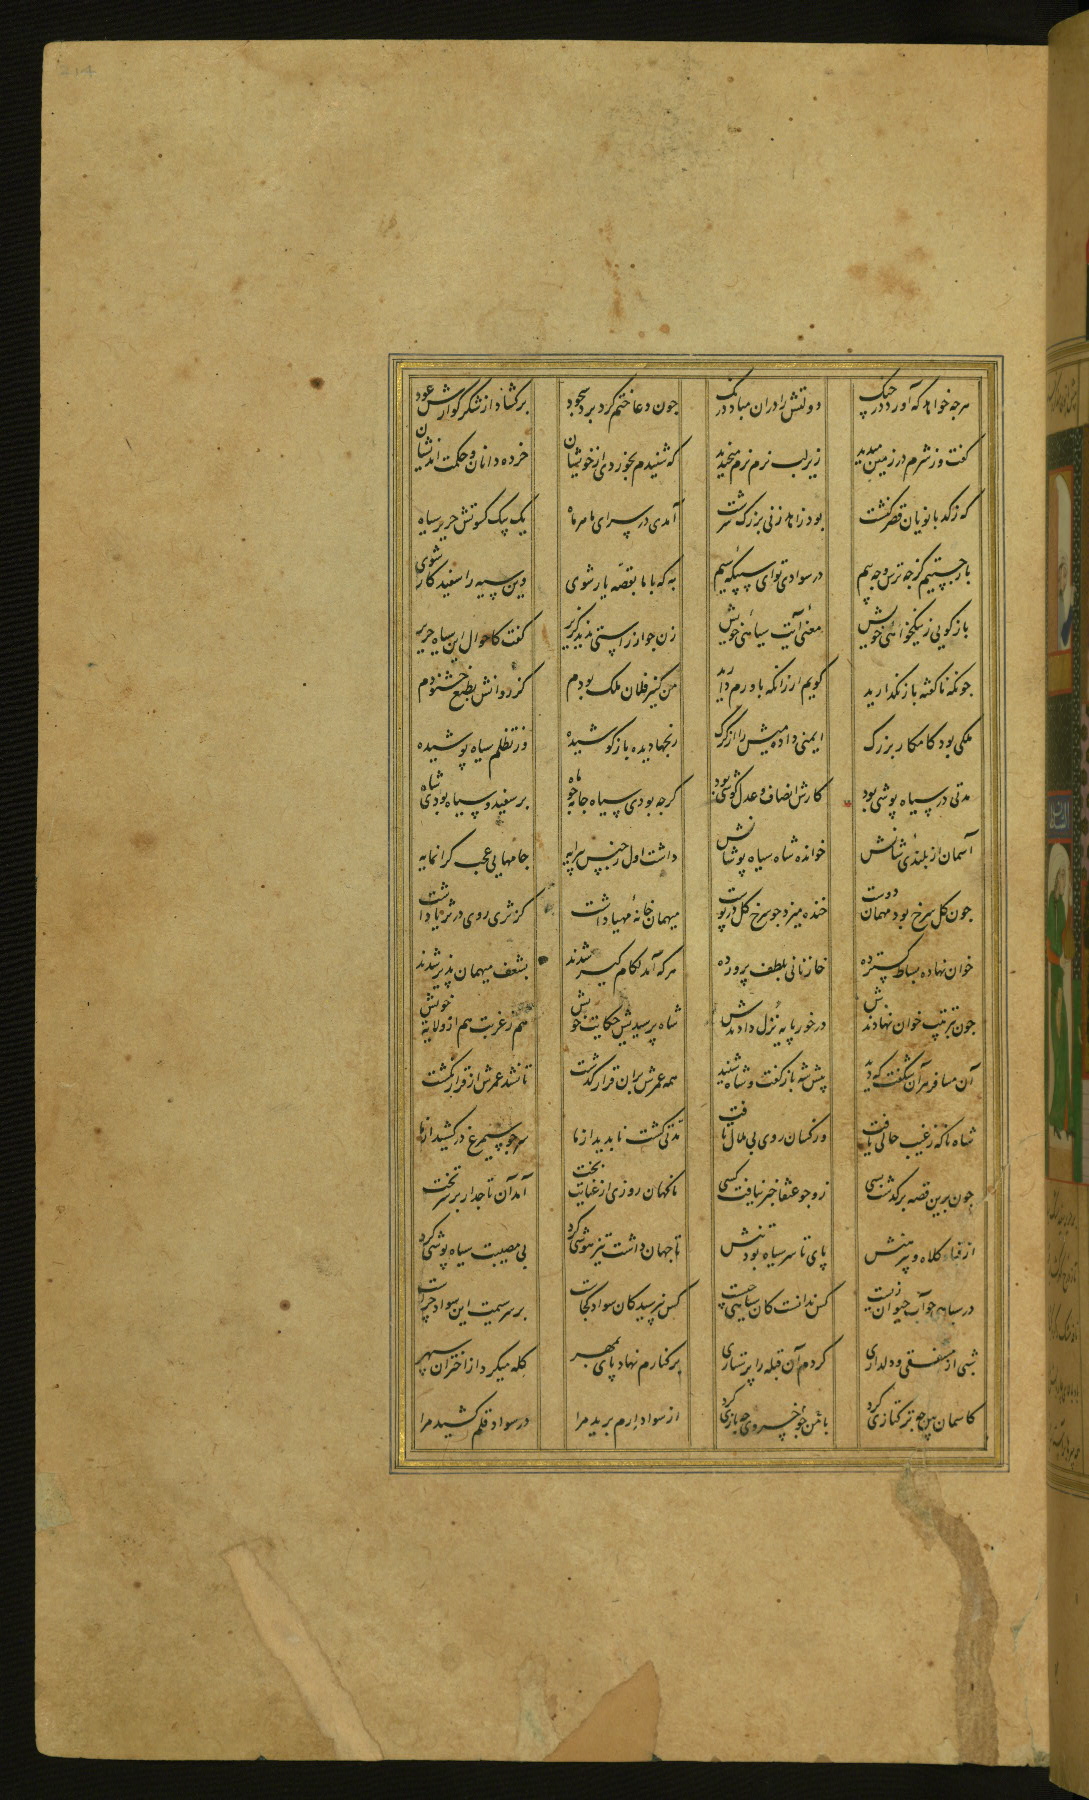 هرچه خواهد که آورد در چنگ دولتش را در آن مباد درنگ چون دعا ختم کرد برد سجود برگشاد از شکر گوارش عود
گفت وز شرم در زمین میدید زیر لب نرم نرم میخندید که شنیدم بخوردی از خویشان خرده دانان و حکمت اندیشان
که ز کدبانویان قصر بهشت بود زاهد زنی بزرگ سرشت آمدی در سرای ما هر ماه یک بیک کسوتش حریر سیاه
باز جستیم کز چه ترس و چه بیم در سوادی تو ای سبیکه سیم به که با ما بقصه یار شوی وین سیه را سفید کار شوی
باز گویی ز نیکخواهی خویش معنی آیت سیاهی خویش زن چو از راستی ندید گزیر گفت کاحوال این سیاه حریر
چونکه ناگفته باز نگذارید گویم ار زانکه باورم دارید من کنیز فلان ملک بودم کز وی ار چه بطبع خشنودم
ملکی بود کامکار بزرگ ایمنی داده میش را از گرگ رنجها دیده باز کوشیده وز تظلم سیاه پوشیده
مدتی در سیاه پوشی بود کارش انصاف و عدل کوشی بود گرچه بودی سیاه جامه چو ماه بر سفید و سیاه بودی شاه
آسمان از بلندی شانش خوانده شاه سیاه پوشانش داشت اول ز جنس پیرایه جامهایی عجب گرانمایه
چون گل سرخ بود مهمان دوست خنده میزد چو سرخ گل در پوست میهمان خانه مهیا داشت کز ثری روی در ثریا داشت
خوان نهاده بساط گسترده خازنانی بلطف پرورده هرکه آمد لگام گیر شدند بشعف میهمان پذیر شدند
چون بترتیب خوان نهادندش در خور پایه نزل دادندش شاه پرسیدیش حکایت خویش هم ز غربت هم از ولایت خویش
آن مسافر هر آن شگفت که دید پیش شه باز گفت و شاه شنید همه عمرش بران قرار گذشت تا نشد عمرش از قرار نگشت
شاه ناگه ز غیب حالی یافت وز کسان روی بی ملال بتافت مدتی گشت ناپدید از ما سر چو سیمرغ درکشید از ما
چون برین قصه برگذشت بسی زو چو عنقا خبر نیافت کسی ناگهان روزی از عنایت بخت آمد آن تاجدار بر سر تخت
از قبا و کلاه و پیرهنش پای تا سر سیاه بود تنش تا جهان داشت تیز هوشی کرد بی مصیبت سیاه پوشی کرد
در سیاهی چو آب حیوان زیست کس ندانست کان سیاهی چیست کس نپرسید کان سواد کجاست بر سر سیمت این سواد چراست
شبی از مشفقی و دلداری کردم آن قبله را پرستاری بر کنارم نهاد پای بمهر گله میکرد از اختران سپهر
کاسمان بین چه ترکتازی کرد با من خسروی چه بازی کرد از سواد ارم برید مرا در سواد قلم کشید مرا